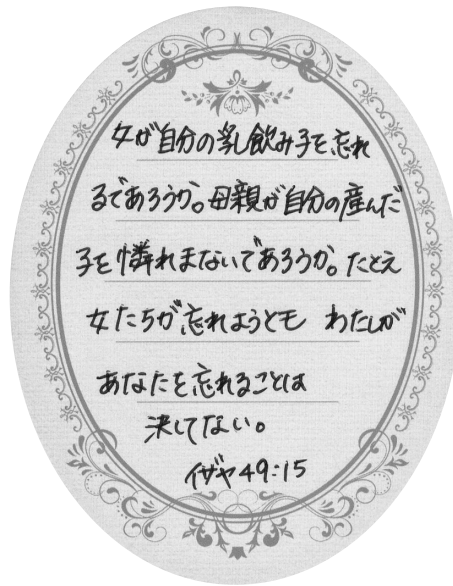 女が自分の乳飲み子を忘れ
るであろうか。母親が自分の産んだ
子を憐れまないであろうか。たとえ
女たちが忘れようとも わたしが
あなたを忘れることは
決してない。
イザヤ49:15